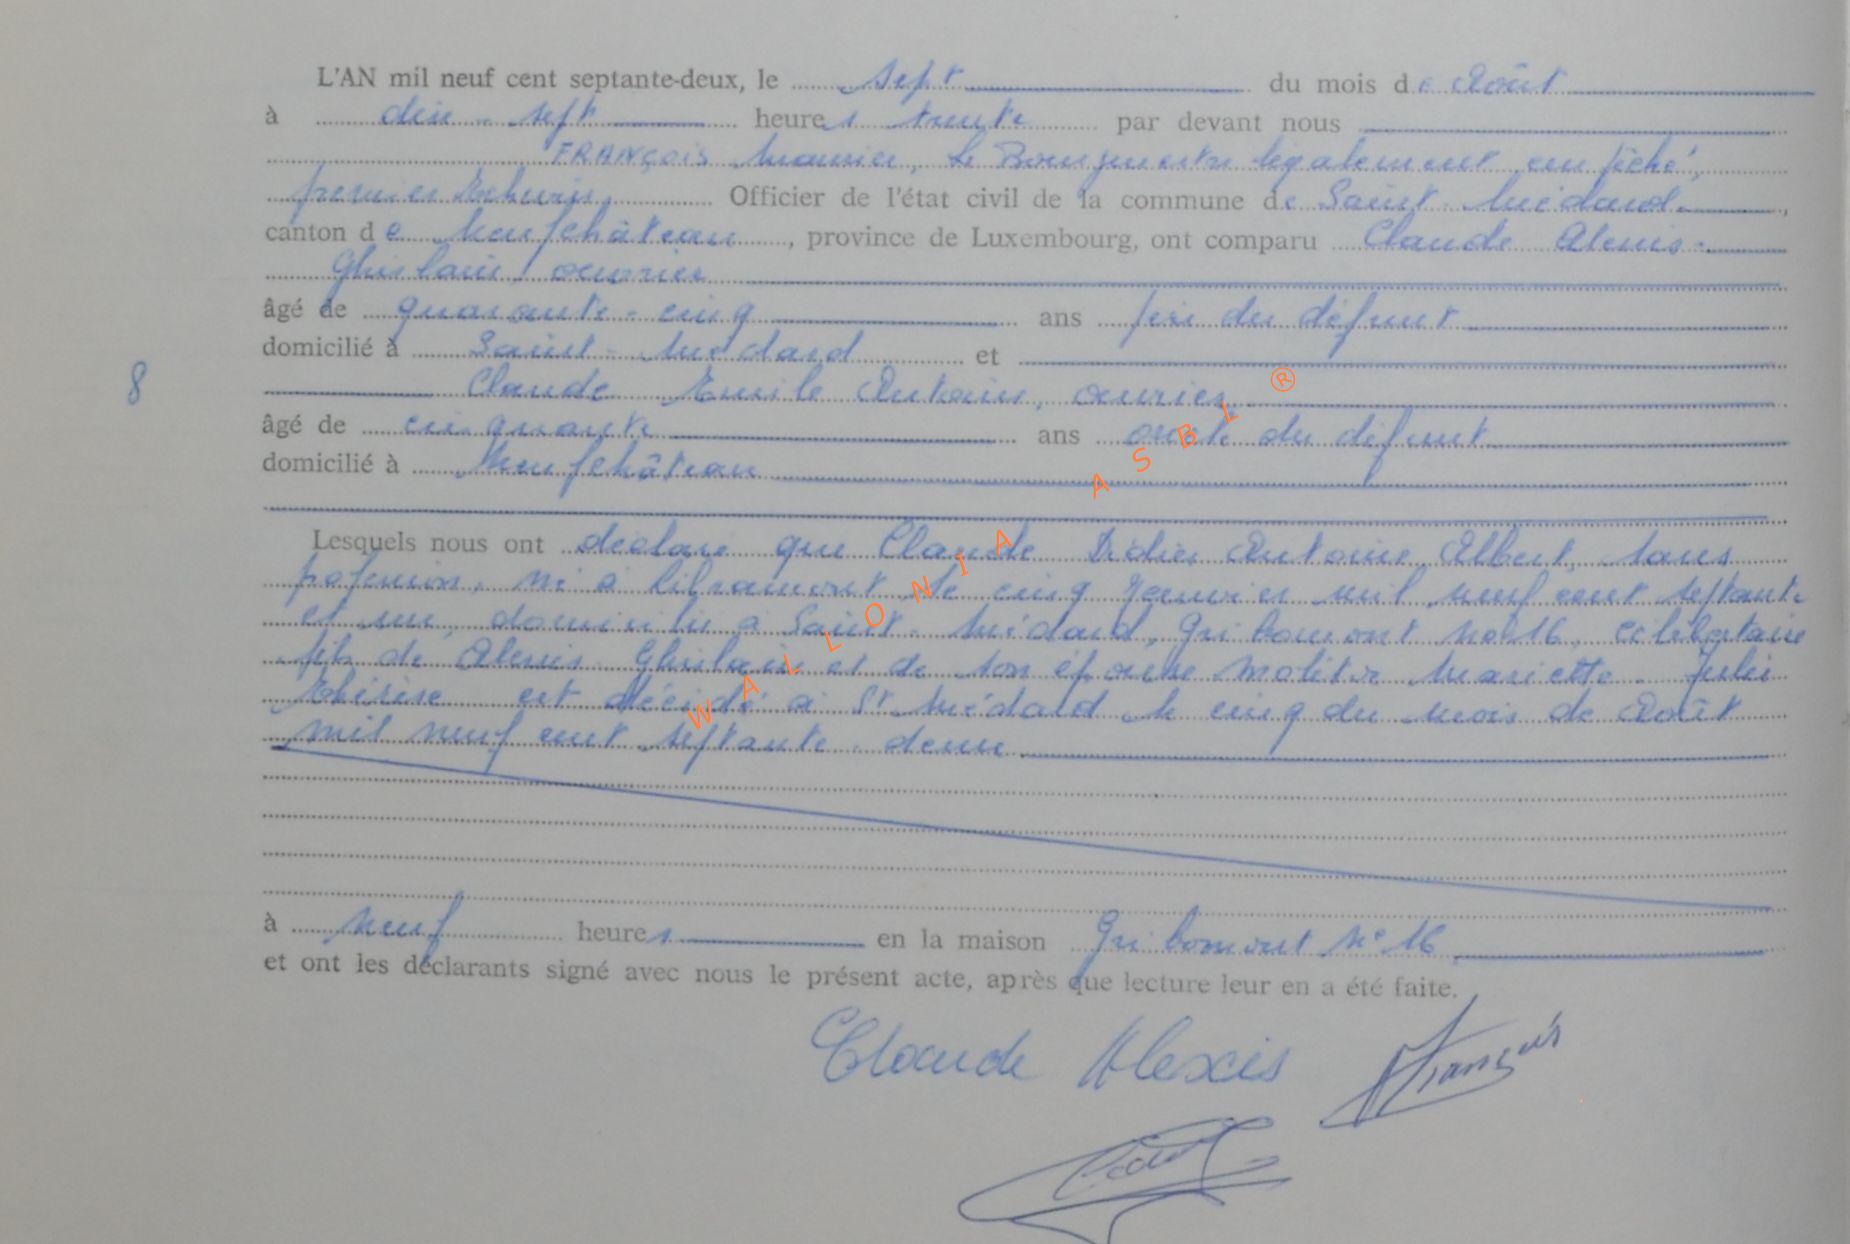 L'AN mil neuf cent septante-deux, le sept du mois de Août
à dix-sept heures trente par devant nous
FRANÇOIS Maurice, Le Bourgmestre légalement empêché,
premier Echevin, Officier de l'état civil de la commune de Saint-Médard,
canton de Neufchâteau, province de Luxembourg, ont comparu Claude Alexis-
Ghislain, ouvrier
âgé de quarante-cinq ans père du défunt
domicilié à Saint-Médard et
8
Claude Emile Antoine, ouvrier,
âgé de cinquante ans oncle du défunt
domicilié à Neufchâteau
Lesquels nous ont déclaré que Claude Didier Antoine Albert, sans
profession, né à Libramont le cinq janvier mil neuf cent septante
et un, domicilié à Saint-Médard, Gribomont No 16, célibataire
fils de Alexis Ghislain et de son épouse Molitor Mariette-Julie
Thérèse est décédé à St Médard le cinq du mois de Août
mil neuf cent septante-deux
à neuf heures en la maison Gribomont N° 16
et ont les déclarants signé avec nous le présent acte, après que lecture leur en a été faite.
Claude Alexis
François
WALLONIA ASBL ®